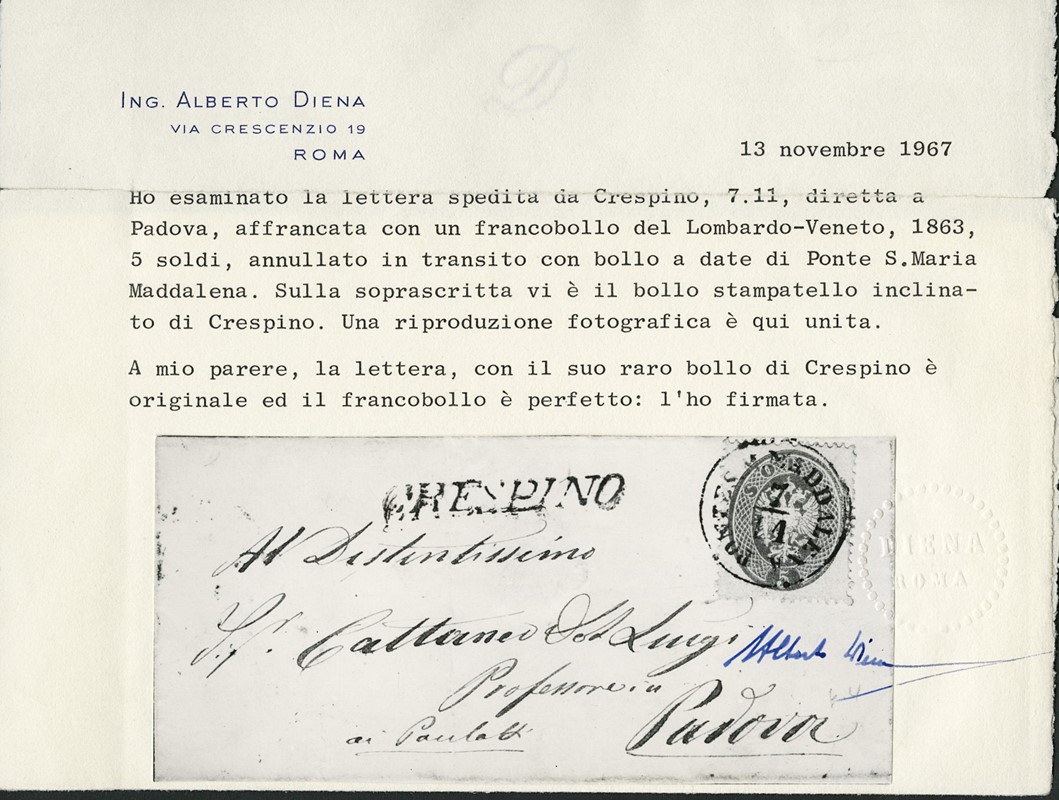 ING. ALBERTO DIENA
VIA CRESCENZIO 19
ROMA
13 novembre 1967
Ho esaminato la lettera spedita da Crespino, 7.11, diretta a
Padova, affrancata con un francobollo del Lombardo-Veneto, 1863,
5 soldi, annullato in transito con bollo a date di Ponte S.Maria
Maddalena. Sulla soprascritta vi è il bollo stampatello inclina-
to di Crespino. Una riproduzione fotografica è qui unita.
A mio parere, la lettera, con il suo raro bollo di Crespino è
originale ed il francobollo è perfetto: l'ho firmata.
CRESPINO
PONTE S M MADDALENA
7
Al Distentissimo
Cattaneo Dot Luigi
Professore in
Padova
ai
Alberto Diena
DIENA
ROMA